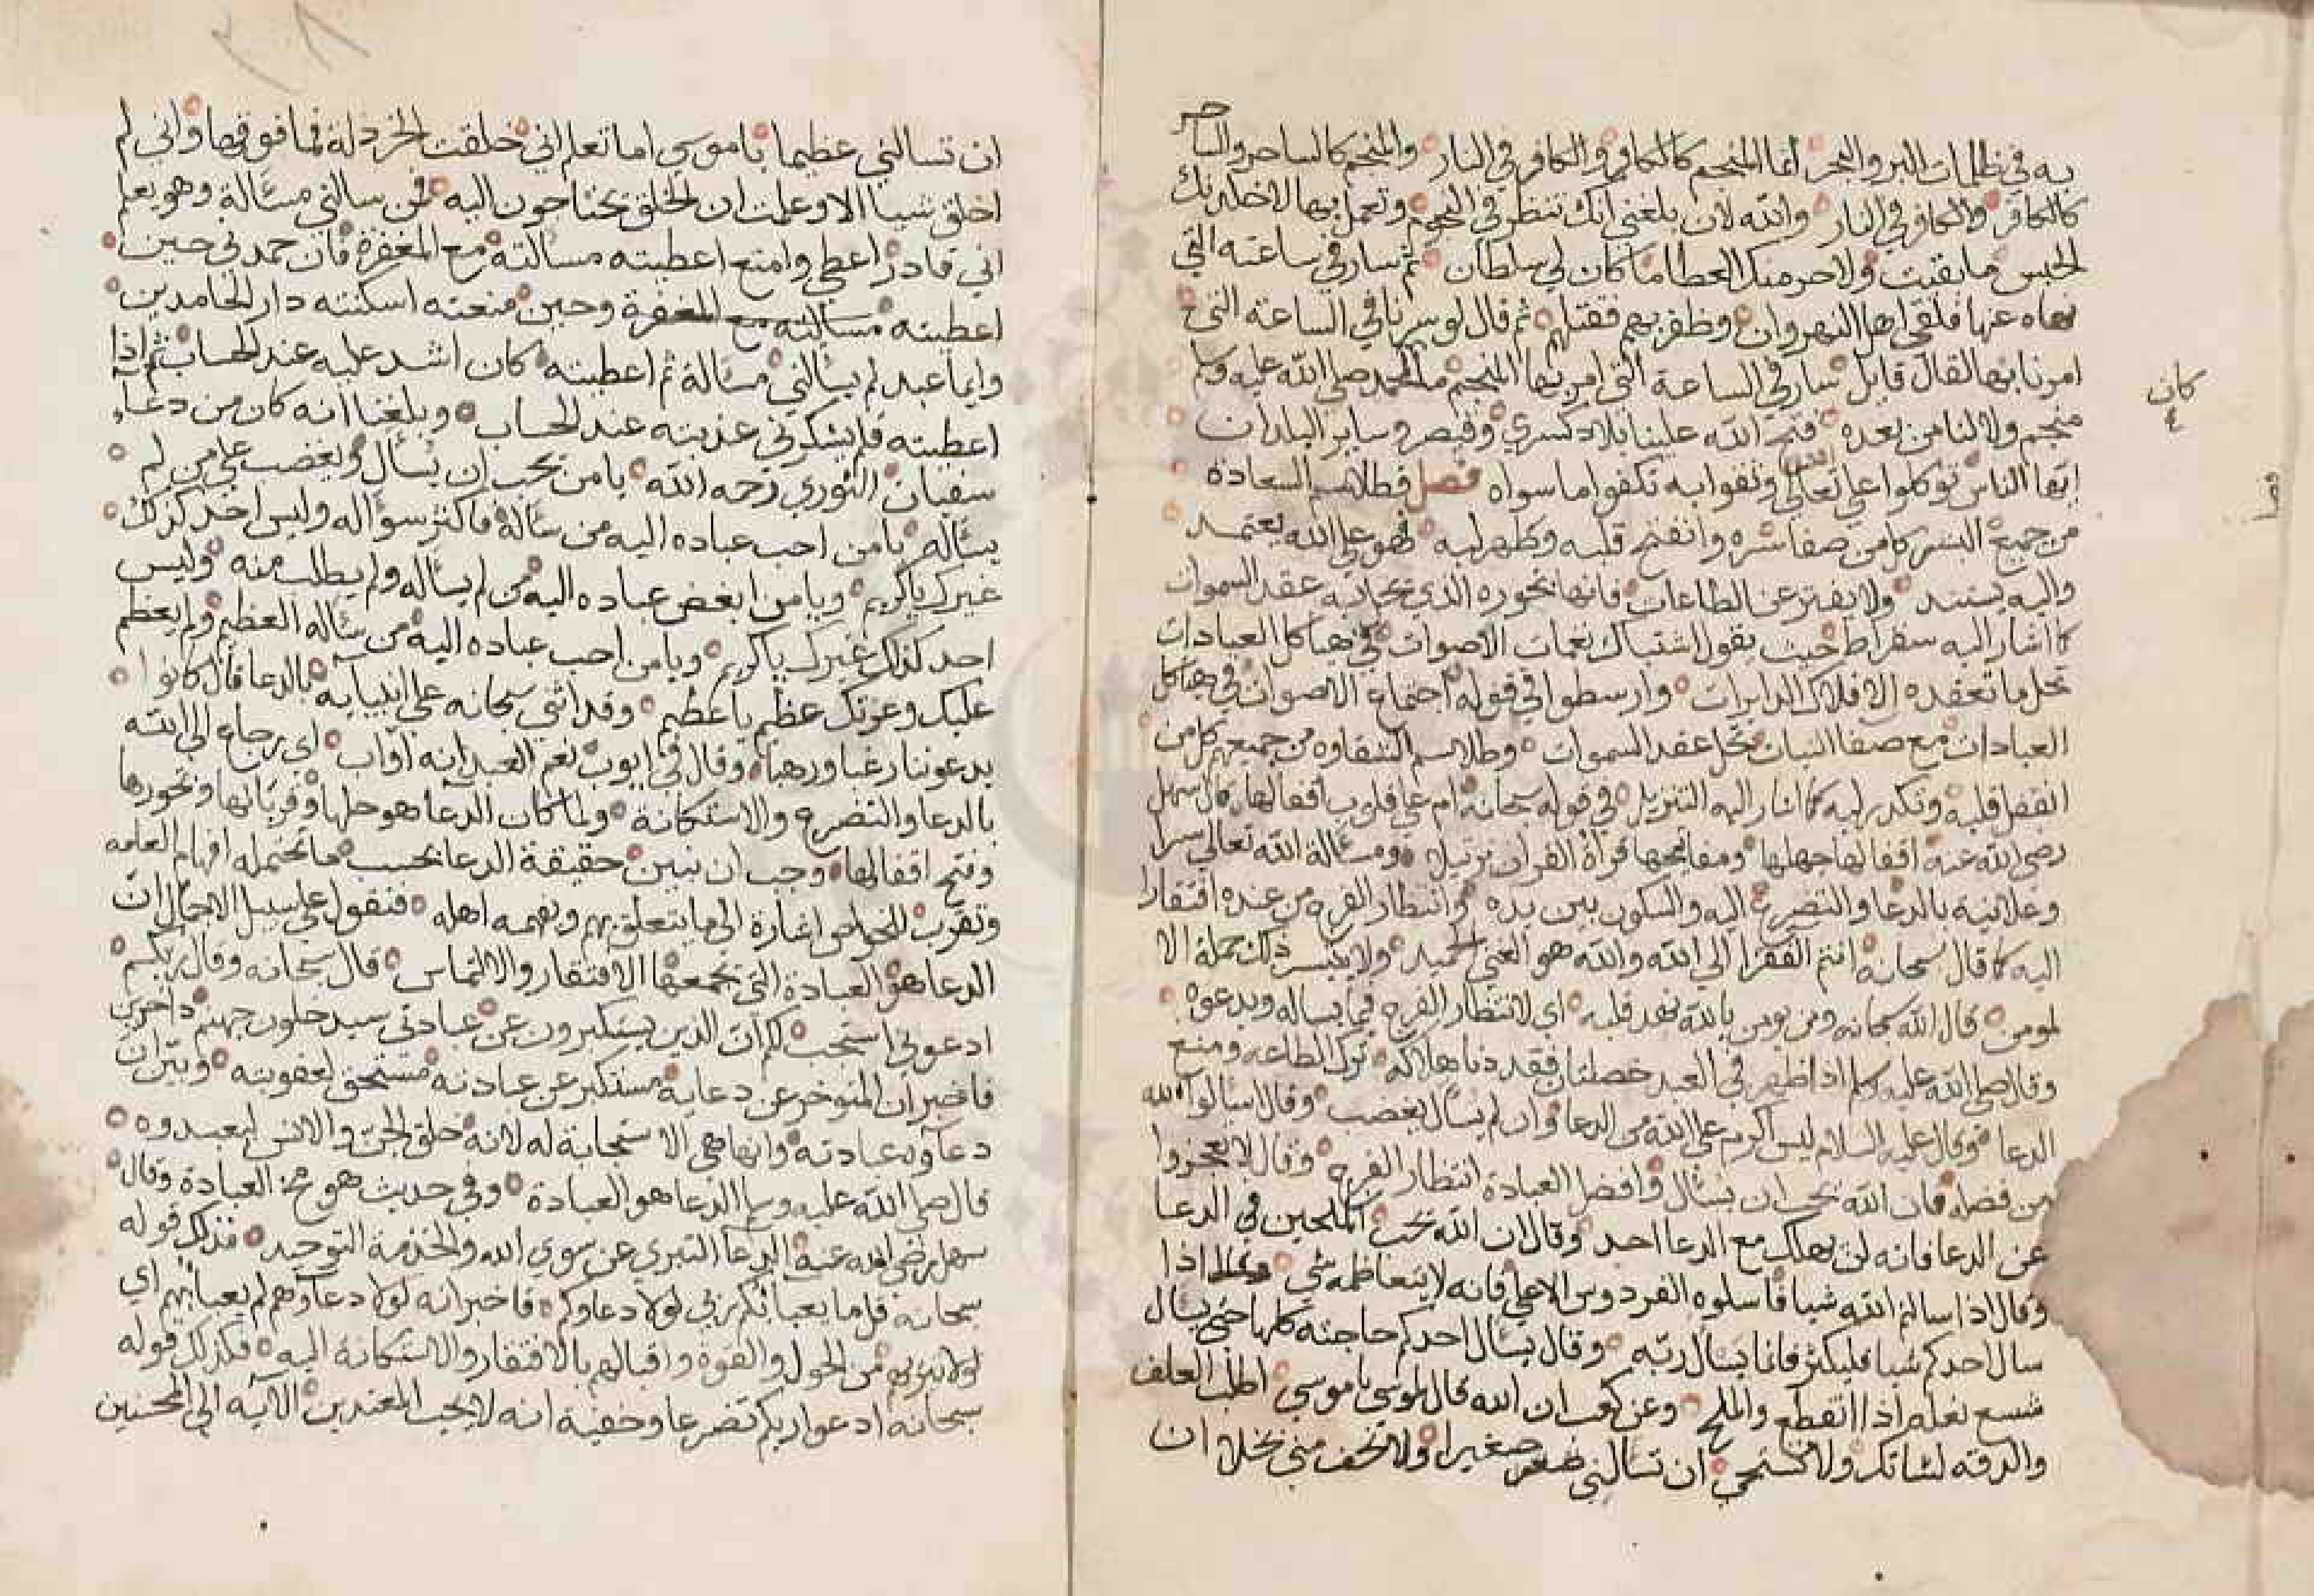 به في ظلمات البر والبحر انما المنجم كالكافر والكافر في النار والمنجم كالساحر والساحر
كالكافر والكافر في النار والله لان بلغني انك تنظر في النجوم وتعمل بها لاخلدنك
الحبس ما بقيت ولاحرمنك العطا ما كان لي سلطان ثم سار في ساعته التي
نهاه عنها فلقي اهل النهروان وظفر بهم فقتلهم ثم قال لو سرنا في الساعة التي
امرنا بها لقال قايل سار في الساعة التي امر بها المنجم ما لمحمد صلى الله عليه وسلم
كان
منجم ولا لنا من بعده فتح الله علينا بلاد كسري وقيصر وساير البلدان
ايها الناس توكلوا على تعالى وثقوا به تكفوا ما سواه فصل فطلاسم السعادة
من جميع البشر كل من صفا سره وانفتح قلبه وطهر لبه فهو على الله يعتمد
واليه يستند ولا يفتر عن الطاعات فانها بخوره الذي تحل به عقد السموات
كما اشار اليه سقراط حيث يقول اشتباك نغمات الاصوات في هياكل العبادات
تحل ما تعقده الافلاك الدايرات وارسطوا في قوله اجتماع الاصوات في هياكل
العبادات مع صفا النيات تحل عقد السموات وطلاسم الشقاوه من جميعهم كل من
انقفل قلبه وتكدر لبه كما اشار اليه التنزيل في قوله سبحانه ام على قلوب اقفالها قال سهل
رضي الله عنه اقفالها جهلها ومفاتيحها قرأة القران بترتيل ومسئالة الله تعالى سرا
وعلانية بالدعا والتضرع اليه والسكون بين يده وانتظار الفرج من عنده افتقارا
اليه كما قال سبحانه انتم الفقرا الي الله والله هو الغني الحميد ولا يتيسر ذلك جملة الا
لمومن قال الله سبحانه ومن يومن بالله يهد قلبه اي لانتظار الفرج فيما يساله ويدعوه
وقال صلى الله عليه وسلم اذا ظهر في العبد خصلتان فقد دنا هلاكه ترك الطاعه ومنع
الدعا وقال عليه السلام ليس اكرم على الله من الدعا وان لم يسأل يغضب وقال اسالوا الله
من فضله فان الله يحب ان يسئال وافضل العبادة انتظار الفرج وقال لا تعجزوا
عن الدعا فانه لن يهلك مع الدعا احد وقال ان الله يحب الملحين في الدعا
وقال اذا سالتم الله شيا فاسلوه الفردوس الاعلي فانه لا يتعاظمه شي وقال اذا
سال احدكم شيا فليكثر فانما يسئال ربه وقال يسئال احدكم حاجته كلها حتى يسئال
شسع نعله اذا انقطع والملح وعن كعب ان الله قال لموسى يا موسي اطلب العلف
والدقة لشاتك ولا تستحي ان تسئالني صغيرا ولا تخف مني بخلا ان
ان تسالني عظيما يا موسي اما تعلم اني خلقت الخردلة فما فوقها واني لم
اخلق شيا الا وعلمت ان الخلق يحتاجون اليه فمن سالني مسئالة وهو يعلم
اني قادر اعطي وامنع اعطيته مسالته مع المغفرة فان حمدني حين
اعطيته مسالته مع المغفرة وحين منعته اسكنته دار الحامدين
وايما عبد لم يسئالني مسئالة ثم اعطيته كان اشد عليه عند الحساب ثم اذا
اعطيته فلم يشكرني عذبته عند الحساب وبلغنا انه كان من دعاء
سفيان الثوري رحمه الله يا من يحب ان يسئال ويغضب على من لم
يسئاله يا من احب عباده اليه من سئاله فاكثر سواله وليس احد كذلك
غيرك يا كريم ويا من ابغض عباده اليه من لم يسئاله ولم يطلب منه وليس
احد كذلك غيرك يا كريم ويا من احب عباده اليه من سئاله العظيم ولم يعظم
عليك وعزتك عظم يا عظيم وقد اثني سبحانه على انبيايه بالدعا فقال كانوا
يدعوننا رغبا ورهبا وقال في ايوب نعم العبد انه اواب اي رجاع الى الله
بالدعا والتضرع والاستكانة ولما كان الدعا هو حلها وقربانها وبخورها
وفتح اقفالها وجب ان نبين حقيقة الدعا بحسب ما تحتمله افهام العامه
وتقرب الخواص اشارة الى ما يتعلق بهم ويفهمه اهله فنقول على سبيل الاجمال ان
الدعا هو العبادة التي تجمعها الافتقار والالتماس قال سبحانه وقال ربكم
ادعوني استجب لكم ان الذين يستكبرون عن عبادتي سيدخلون جهنم داخرين
فاخبر ان المتوخر عن دعايه مستكبر عن عبادته مستحق لعقوبته وبين ان
دعآوه عبادته وانها هي الاستجابة له لانه خلق الجن والانس ليعبدوه
قال صلى الله عليه وسلم الدعا هو العبادة وفي حديث هو مخ العبادة وقال
سهل رضي الله عنه الدعآ التبري عن سوي الله والخذمة التوحيد فذلك قوله
سبحانه قل ما يعبأ بكم ربي لولا دعاوكم فاخبر انه لولا دعآوهم لم يعبا بهم اي
لولا تبريهم من الحول والقوة واقبالهم بالافتقار والاستكانة اليه فكذلك قوله
سبحانه ادعوا ربكم تضرعا وخفية انه لا يحب المعتدين الآيه الى المحسنين